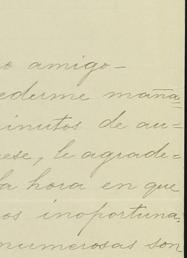 o amigo-
ederme maña=
inutos de au-
ese, le agrade-
la hora en que
os inoportuna.
numerosas son